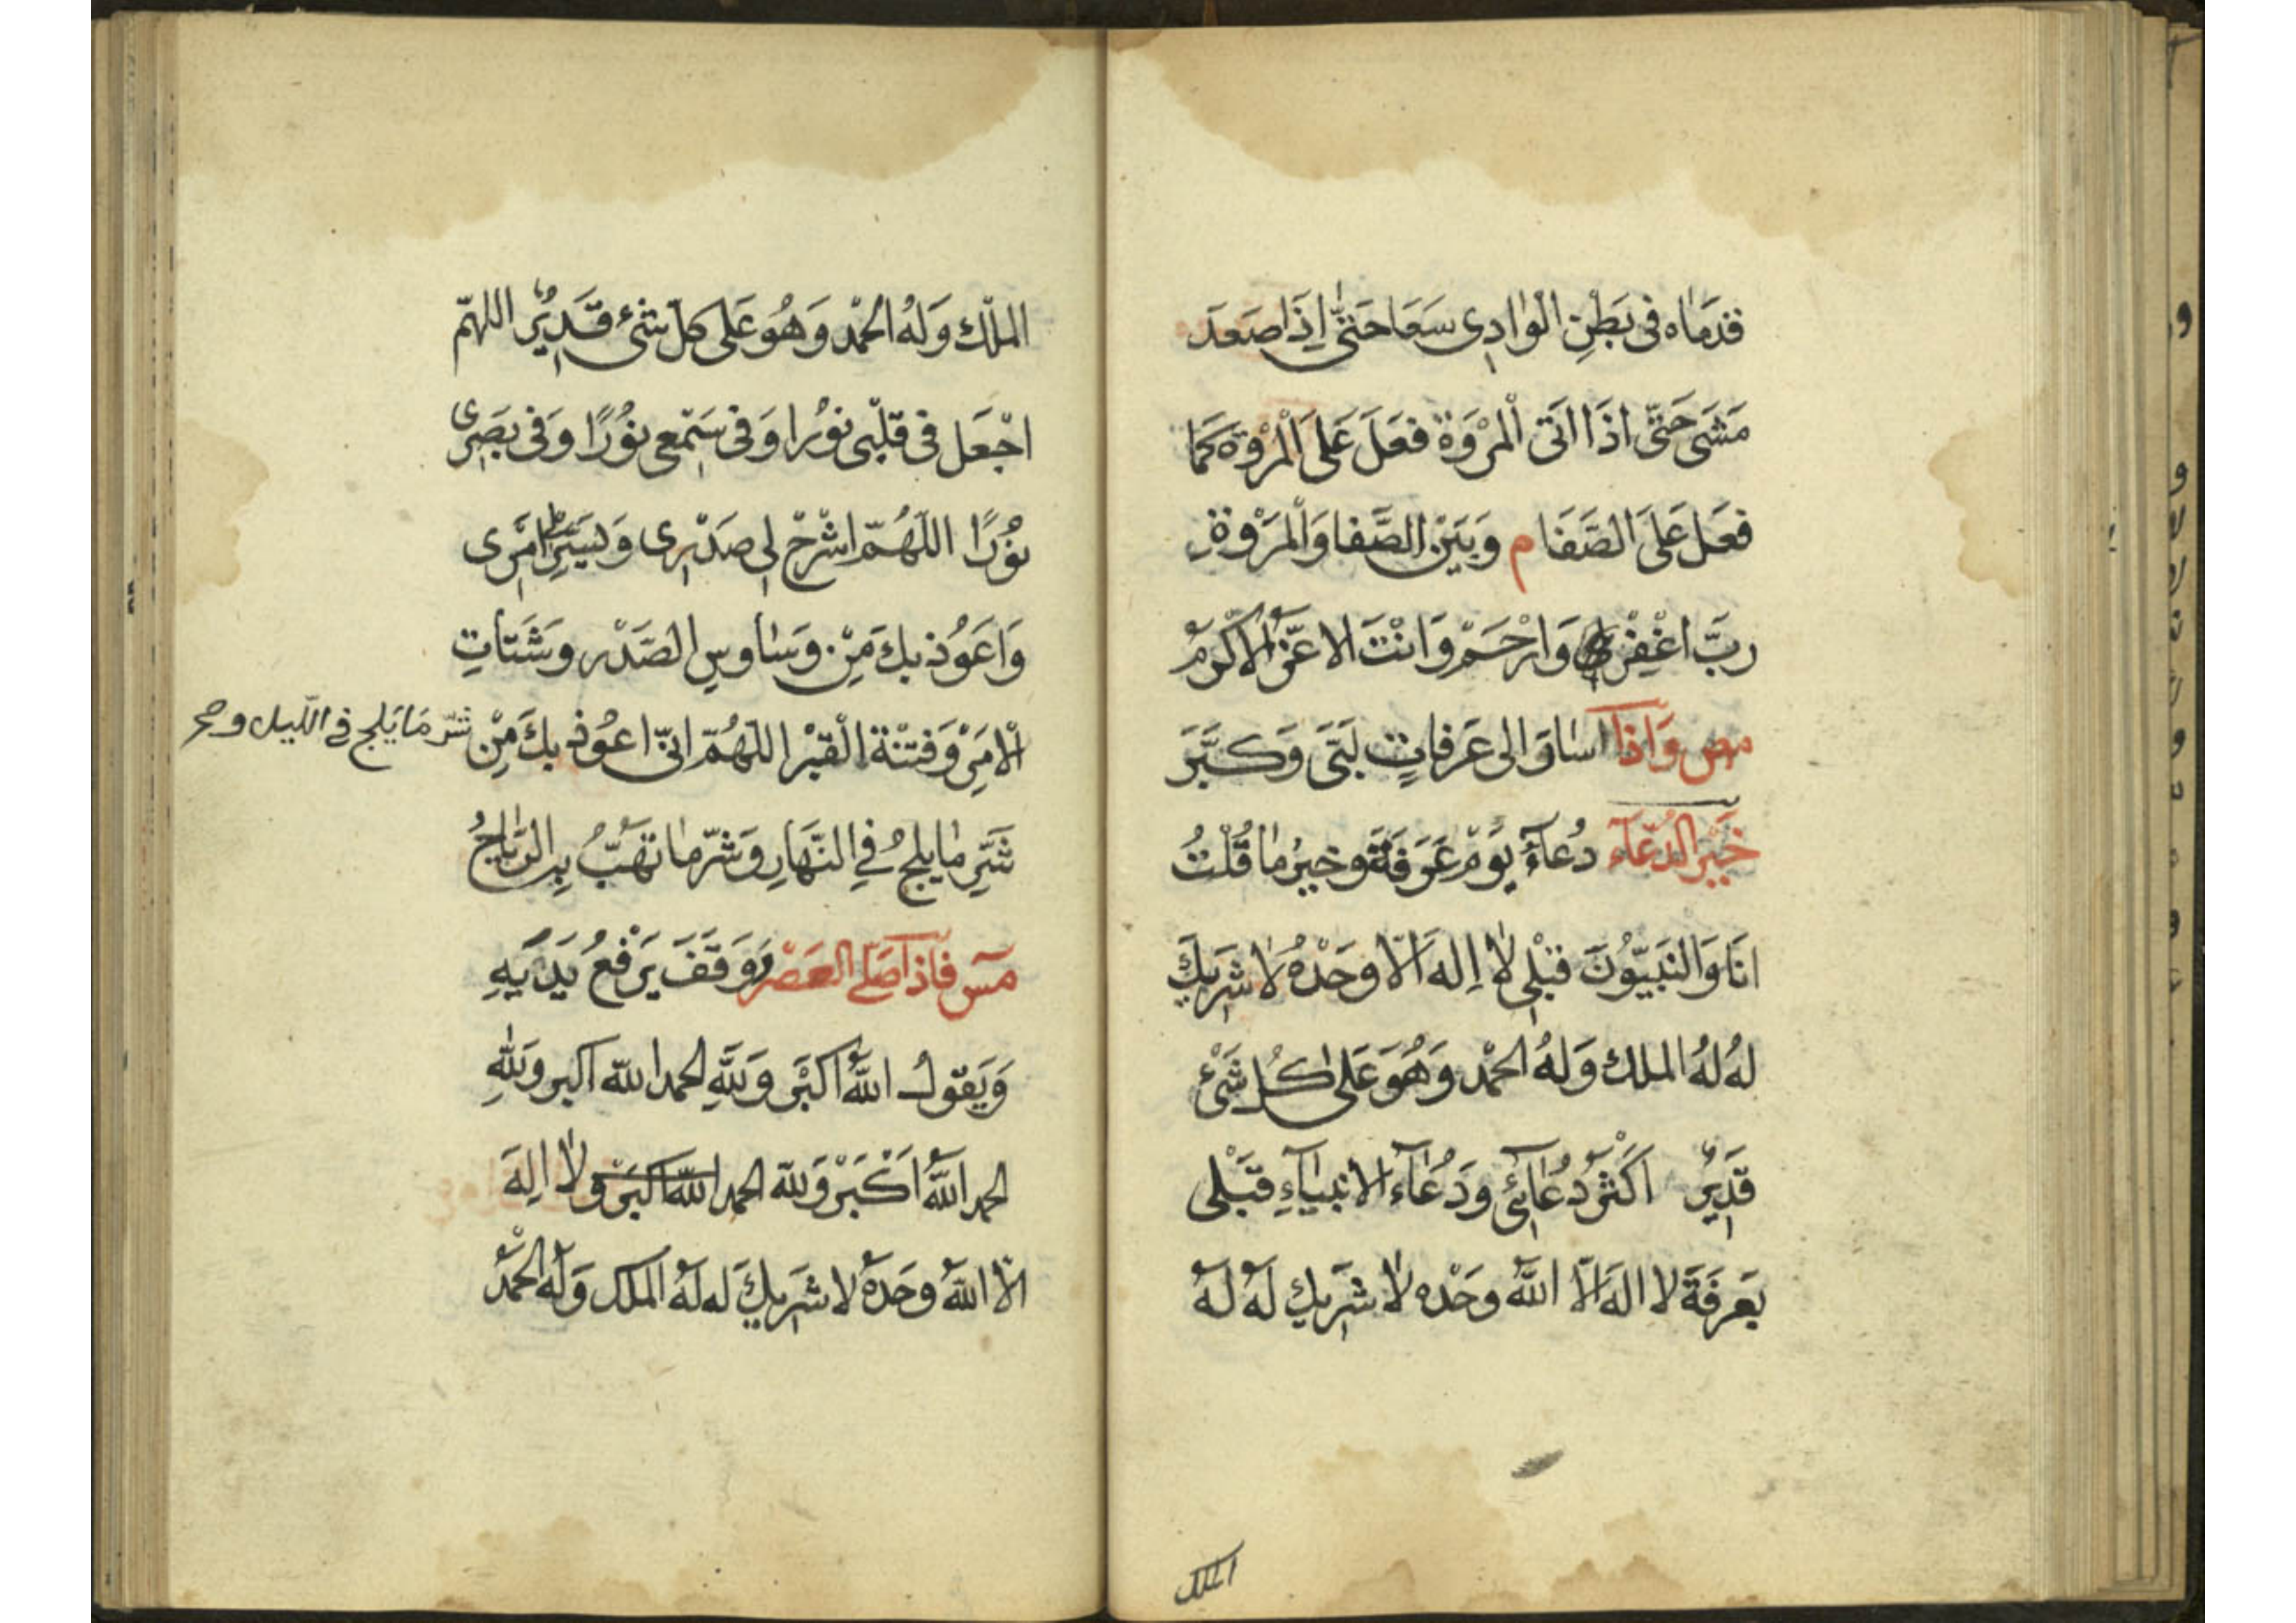 قدَمَاه فى بَطْنِ الْوٰادِى سَعَا حَتّٰى اِذَا صَعَدَ
مَشَى حَتّٰى اذَا اتَى الْمَرْوَةَ فعَلَ عَلَى الْمَرْوَة كَمَا
فعَلَ عَلَى الصَّفَا م وَبَيْن الصَّفا وَالْمَرْوَة
ربَّ اغْفِرْ وَارْحَمْ وَانْتَ الاعَزّ الاكْرَمُ
مص وَاذا سٰارَ الى عَرفاتٍ لَبّى وَكبَّرَ
خَيْر الدُّعَآء دُعآءُ يَوْم عَرَفَة وخيرُ مٰا قُلْتُ
انَا وَالنَبيّونَ قَبْلى لا اِله اَلّا وحَدْهُ لا شَرِيكَ
لهُ لهُ الملك وَلهُ الحمْد وَهُوَ عَلى كُل شَئ
قَدِيرٌ اكْثرُ دُعَآئى ودُعَآء الانبيٰآءِ قَبْلى
بَعَرفَةَ لا الهَ الّا اللّٰه وحَدْه لا شَرِيك لهُ لهُ
الملك
الملْك وَلهُ الحمْد وَهُوَ عَلى كل شئ قَدِيْرٌ اللهمّ
اجْعَل فى قَلْبى نوُرا وَفى سَمْعى نوُرًا وَفى بَصَرِى
نوُرًا اللّهُمّ اشْرَحْ لى صَدْرِى وَيَسِّرْ لى امْرِى
وَاعَوُذ بكَ مِنْ وَسٰاوسِ الصَّدْر وشَتاتِ
الْامَرْ وَفتْنَة الْقَبْر اللهُمّ انّى اعوُذ بكَ مِنْ شرّ مَا يَلج فى اللّيل وصح
شَرِّ مٰا يلجُ فِي النَّهَارِ وَشرّ مٰا تهَبُّ بِه الرّيٰاحُ
مَس فَاذا صَلّى العَصْر وَوَقَفَ يَرْفعُ يَدَيَهِ
وَيَقوُل اللّٰهُ اكْبَر وَللّٰهِ الحمد اللّٰه اكبر وَللّٰهِ
الحمد اللّٰهُ اَكْبَرْ وَللّٰه الحمد اللّٰه اكبَرْ ولا اِلهَ
الّا اللّٰهُ وحَدَهُ لا شَرَيكَ له لهُ الملك وَلهُ الحَمْدُ